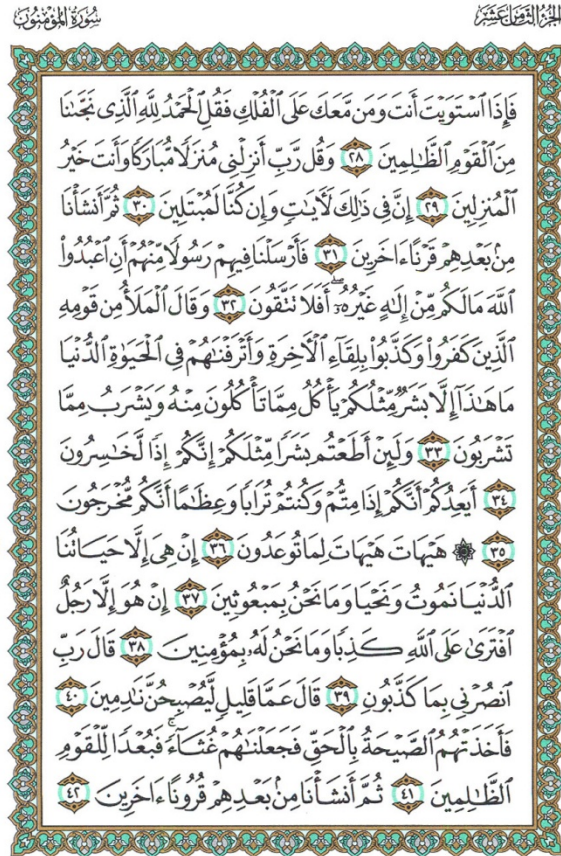 الجزء الثامن عشر
سورة المؤمنون
فَإِذَا ٱسْتَوَيْتَ أَنتَ وَمَن مَّعَكَ عَلَى ٱلْفُلْكِ فَقُلِ ٱلْحَمْدُ لِلَّهِ ٱلَّذِى نَجَّىٰنَا
مِنَ ٱلْقَوْمِ ٱلظَّـٰلِمِينَ ٢٨ وَقُل رَّبِّ أَنزِلْنِى مُنزَلًا مُّبَارَكًا وَأَنتَ خَيْرُ
ٱلْمُنزِلِينَ ٢٩ إِنَّ فِى ذَٰلِكَ لَـَٔايَـٰتٍ وَإِن كُنَّا لَمُبْتَلِينَ ٣٠ ثُمَّ أَنشَأْنَا
مِنۢ بَعْدِهِمْ قَرْنًا ءَاخَرِينَ ٣١ فَأَرْسَلْنَا فِيهِمْ رَسُولًا مِّنْهُمْ أَنِ ٱعْبُدُوا۟
ٱللَّهَ مَا لَكُم مِّنْ إِلَـٰهٍ غَيْرُهُۥٓ ۖ أَفَلَا تَتَّقُونَ ٣٢ وَقَالَ ٱلْمَلَأُ مِن قَوْمِهِ
ٱلَّذِينَ كَفَرُوا۟ وَكَذَّبُوا۟ بِلِقَآءِ ٱلْـَٔاخِرَةِ وَأَتْرَفْنَـٰهُمْ فِى ٱلْحَيَوٰةِ ٱلدُّنْيَا
مَا هَـٰذَآ إِلَّا بَشَرٌ مِّثْلُكُمْ يَأْكُلُ مِمَّا تَأْكُلُونَ مِنْهُ وَيَشْرَبُ مِمَّا
تَشْرَبُونَ ٣٣ وَلَئِنْ أَطَعْتُم بَشَرًا مِّثْلَكُمْ إِنَّكُمْ إِذًا لَّخَـٰسِرُونَ
٣٤ أَيَعِدُكُمْ أَنَّكُمْ إِذَا مِتُّمْ وَكُنتُمْ تُرَابًا وَعِظَـٰمًا أَنَّكُم مُّخْرَجُونَ
٣٥ ۞ هَيْهَاتَ هَيْهَاتَ لِمَا تُوعَدُونَ ٣٦ إِنْ هِىَ إِلَّا حَيَاتُنَا
ٱلدُّنْيَا نَمُوتُ وَنَحْيَا وَمَا نَحْنُ بِمَبْعُوثِينَ ٣٧ إِنْ هُوَ إِلَّا رَجُلٌ
ٱفْتَرَىٰ عَلَى ٱللَّهِ كَذِبًا وَمَا نَحْنُ لَهُۥ بِمُؤْمِنِينَ ٣٨ قَالَ رَبِّ
ٱنصُرْنِى بِمَا كَذَّبُونِ ٣٩ قَالَ عَمَّا قَلِيلٍ لَّيُصْبِحُنَّ نَـٰدِمِينَ ٤٠
فَأَخَذَتْهُمُ ٱلصَّيْحَةُ بِٱلْحَقِّ فَجَعَلْنَـٰهُمْ غُثَآءً ۚ فَبُعْدًا لِّلْقَوْمِ
ٱلظَّـٰلِمِينَ ٤١ ثُمَّ أَنشَأْنَا مِنۢ بَعْدِهِمْ قُرُونًا ءَاخَرِينَ ٤٢